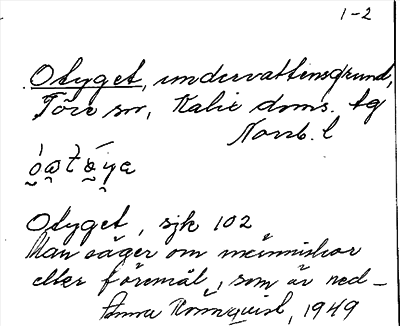 1-2
Otyget, undervattensgrund,
Töre sn, Kalix doms. tg
Norrb. l
Otyget, sjk 102
Man säger om människor
eller föremål, som är ned-
Anna Rönnqvist, 1949